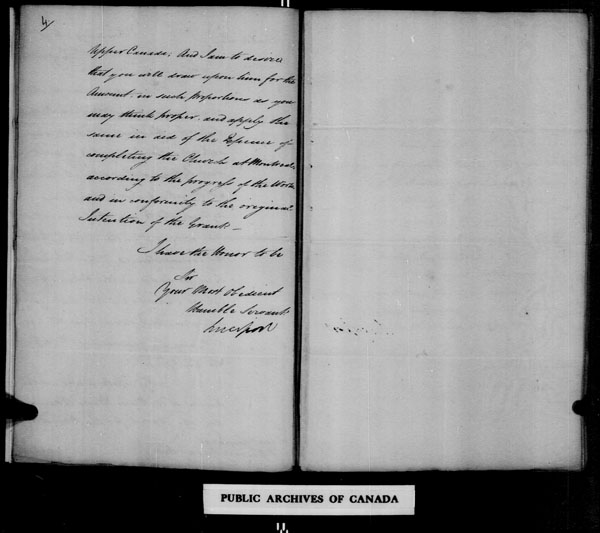 4/
Upper Canada; And I am to desire
that you will draw upon him for the
Amount in such proportions as you
may think proper, and apply the
same in aid of the Expence of
completing the Church at Montreal,
according to the progress of the Work
and in conformity to the original
Intention of the Grant.—
I have the Honor to be
Sir
Your Most Obedient
Humble Servant
Liverpool
PUBLIC ARCHIVES OF CANADA